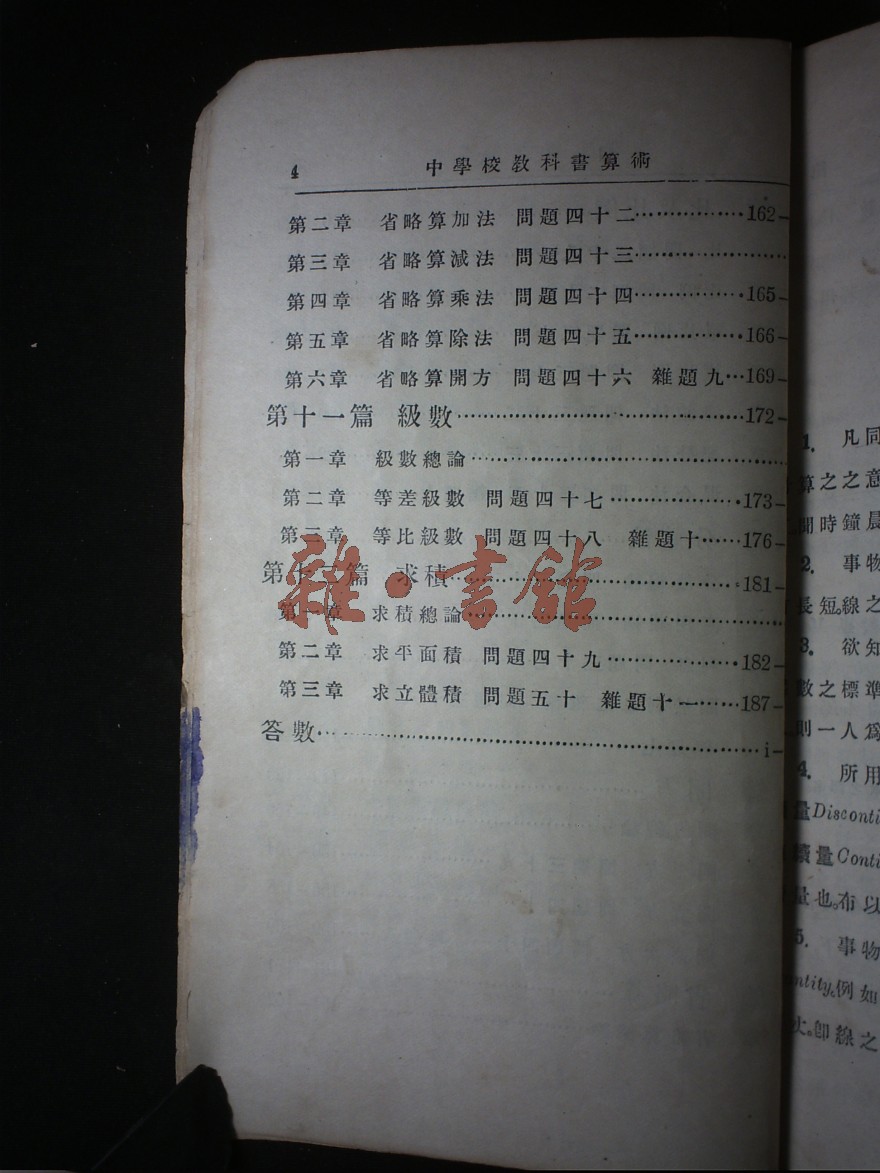 4 中學校教科書算術
第二章 省略算加法 問題四十二………………162
第三章 省略算減法 問題四十三………………
第四章 省略算乘法 問題四十四………………165
第五章 省略算除法 問題四十五………………166
第六章 省略算開方 問題四十六 雜題九…169
第十一篇 級數………………………………172
第一章 級數總論………………………………
第二章 等差級數 問題四十七………………173
第三章 等比級數 問題四十八 雜題十……176
第十二篇 求積………………………………181
第一章 求積總論………………………………
第二章 求平面積 問題四十九………………182
第三章 求立體積 問題五十 雜題十一……187
答數………………………………………………i
雜·書館
1. 凡同
算之之意
時鐘晨
2. 事物
長短。線之
3. 欲知
數之標準
則一人爲
4. 所用
量Disconti
續量Conti
量也。布以
5. 事物
ntity。例如
丈。卽線之